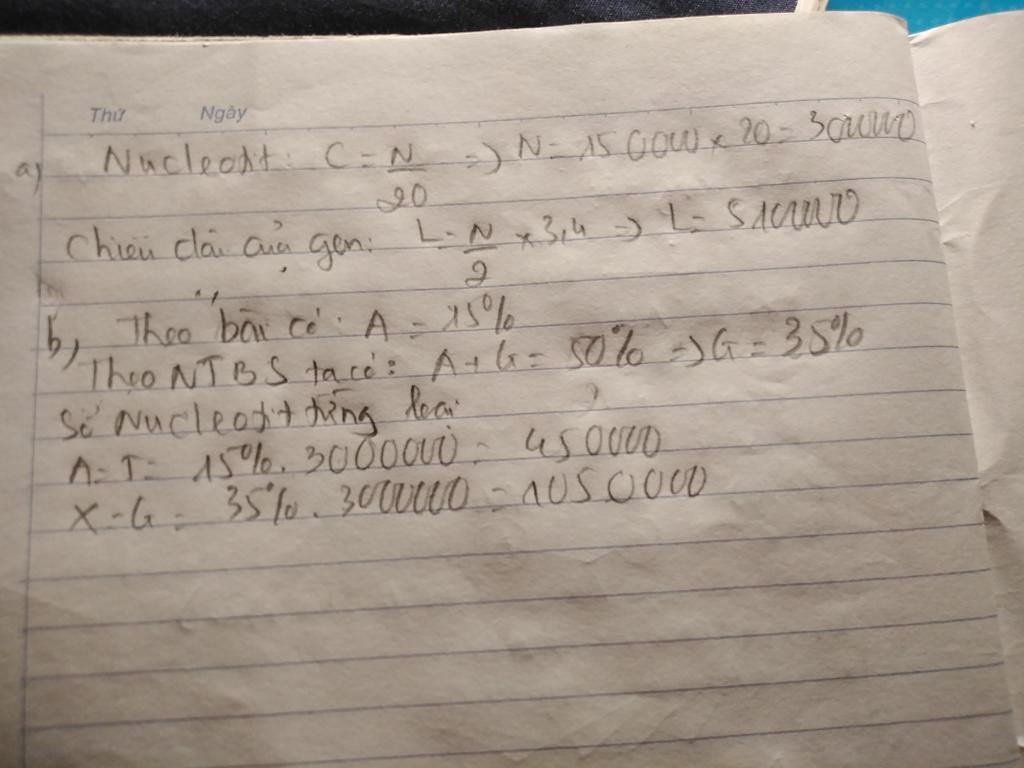 Thứ Ngày
a) Nucleotit: C = N/20 => N = 150000 x 20 = 3000000
Chiều dài của gen: L = N/2 x 3,4 => L = 5100000
b, Theo bài có: A = 15%
Theo NTBS ta có: A + G = 50% => G = 35%
Số Nucleotit từng loại
A = T = 15% . 3000000 = 450000
X = G = 35% . 3000000 = 1050000